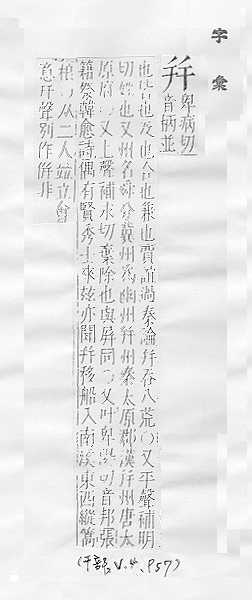 字彙
幷
卑病切
音柄並
也皆也及也合也兼也賈誼過秦論幷吞八荒○又平聲補明
切姓也又州名舜分冀州為幽州幷州秦太原郡漢幷州唐太
原府○又上聲補永切棄除也與屏同○又叶卑
切音邦張
籍祭韓愈詩偶有賢秀士來茲亦同幷移船入南溪東西縱篙
从二人竝立會
意幵聲別作併非
(干部, P57)